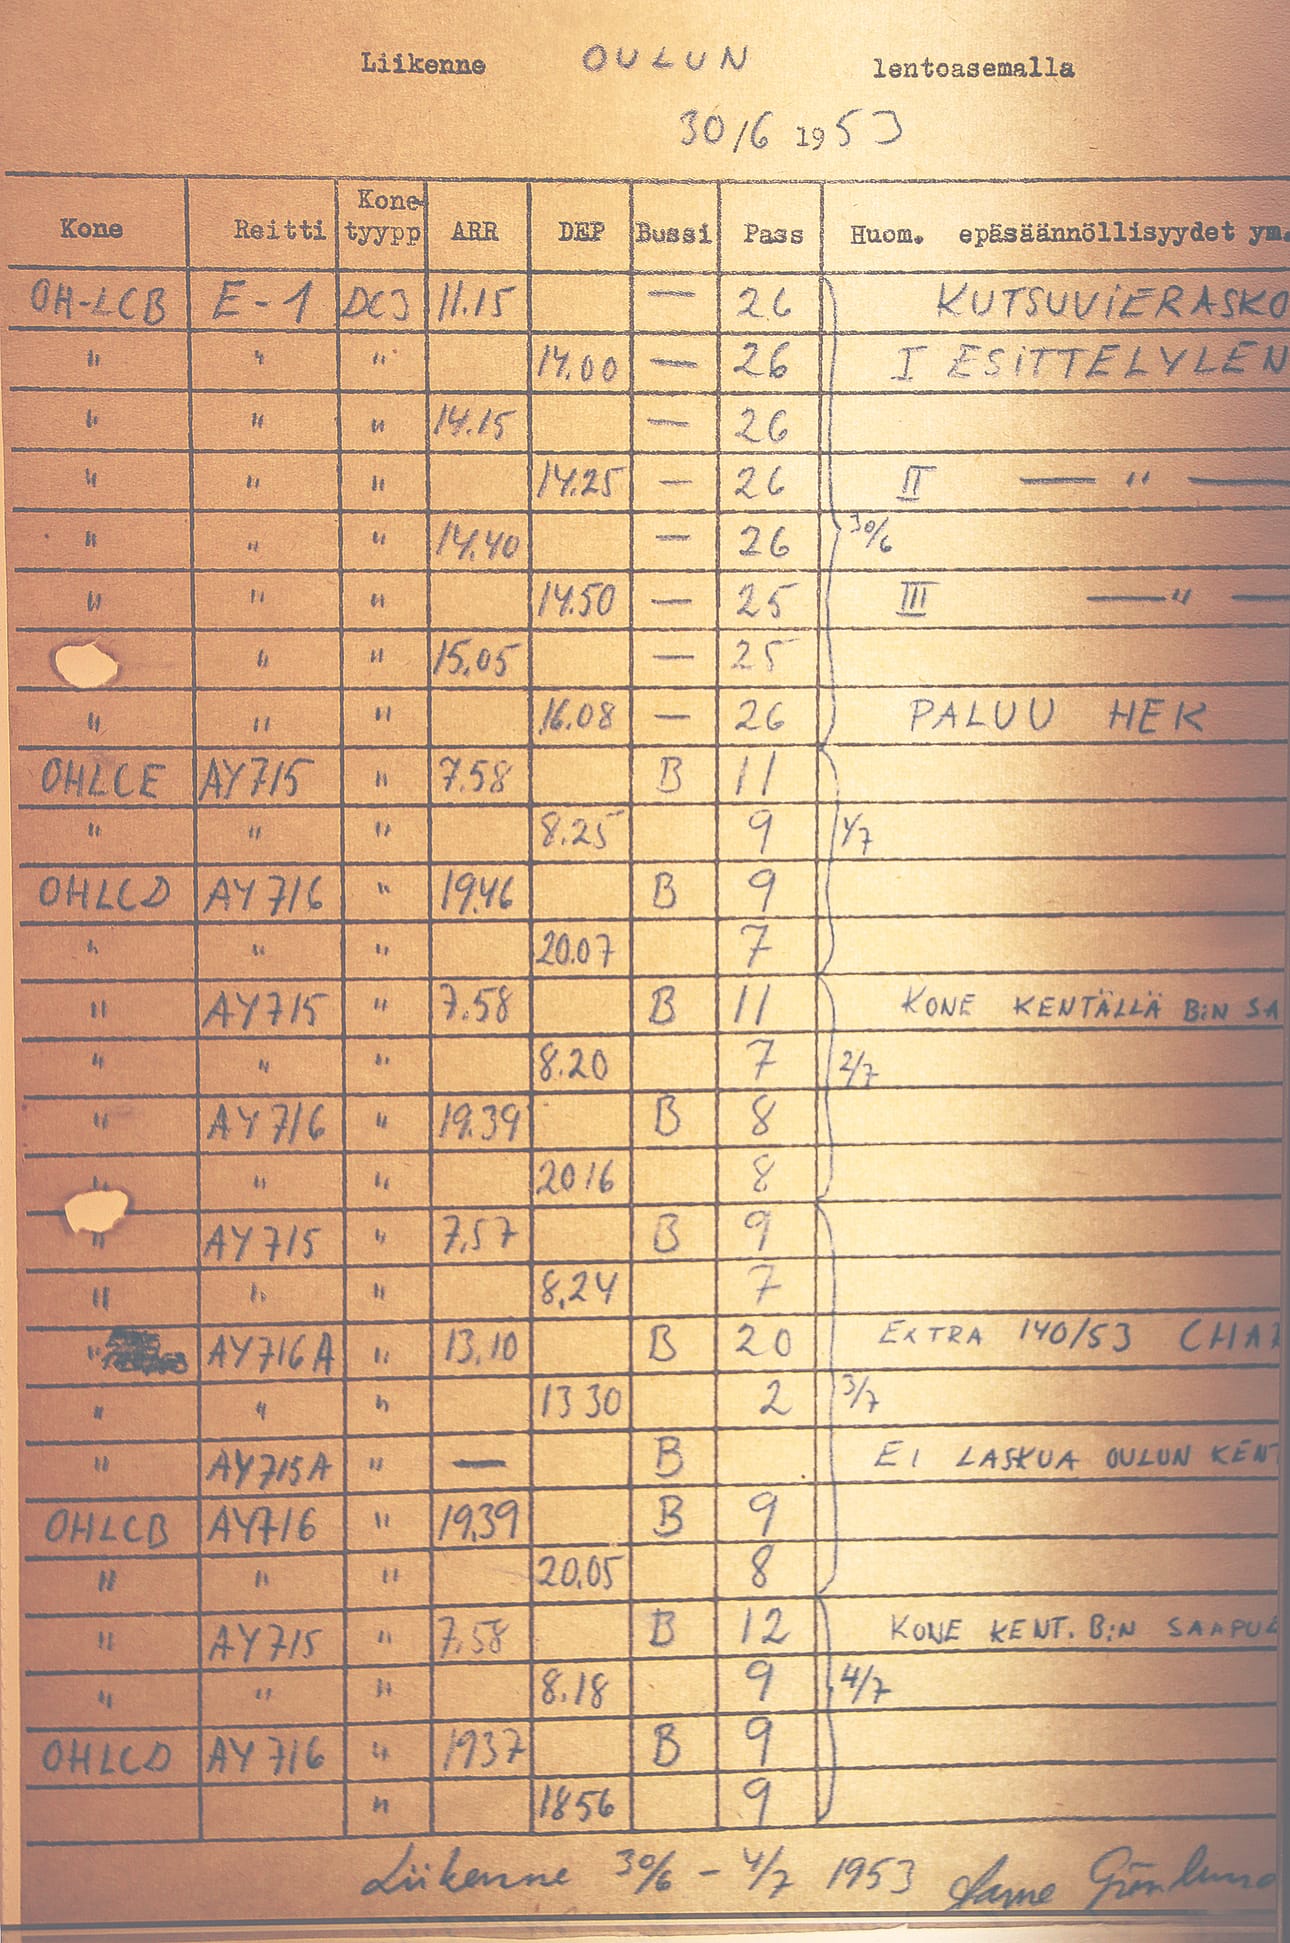 Liikenne OULUN lentoasemalla
30/6 1953
Kone Reitti Kone-tyypp ARR DEP Bussi Pass Huom. epäsäännöllisyydet ym.
OH-LCB E-1 DC3 11.15 — 26 KUTSUVIERASKO
" " " 14.00 — 26 I ESITTELYLEN
" " " 14.15 — 26
" " " 14.25 — 26 II — " —
" " " 14.40 — 26 30/6
" " " 14.50 — 25 III — " —
" " 15.05 — 25
" " " 16.08 — 26 PALUU HEK
OHLCE AY715 " 7.58 B 11
" " " 8.25 9 1/7
OHLCD AY716 " 19.46 B 9
" " " 20.07 7
" AY715 " 7.58 B 11 KONE KENTÄLLÄ B:N SA
" " " 8.20 7 2/7
" AY716 " 19.39 B 8
" " " 2016 8
" AY715 " 7.57 B 9
" " " 8.24 7
" AY716A " 13.10 B 20 EXTRA 140/53 CHA
" " " 13 30 2 3/7
" AY715A " — B EI LASKUA OULUN KENT
OHLCB AY716 " 19.39 B 9
" " " 20.05 8
" AY715 " 7.58 B 12 KONE KENT. B:N SAAPU
" " " 8.18 9 4/7
OHLCD AY716 " 1937 B 9
" 1856 9
Liikenne 30/6 – 4/7 1953 Grönlund